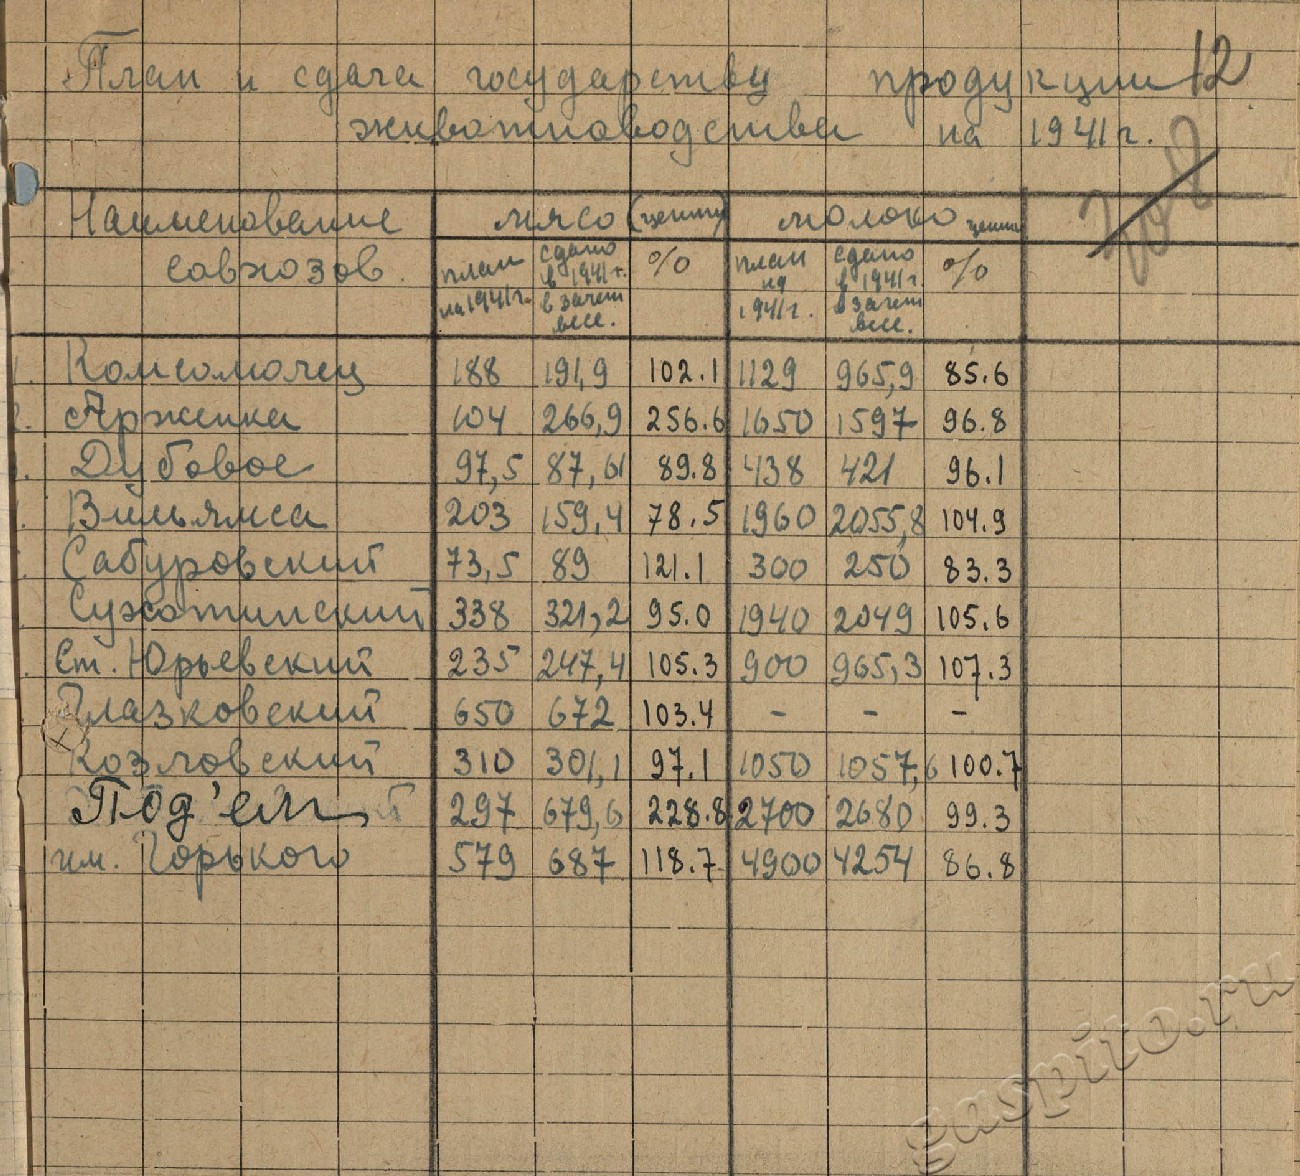 План и сдача государству продукции 12
животноводства на 1941 г.
Наименование совхозов. мясо (цент) молоко цент
план на 1941 г. сдано в 1941 г. в зачет весе. % план на 1941 г. сдано в 1941 г. в зачет весе. %
1. Комсомолец 188 191,9 102.1 1129 965,9 85.6
2. Арженка 104 266,9 256.6 1650 1597 96.8
Дубовое 97,5 87,61 89.8 438 421 96.1
Вильямса 203 159,4 78.5 1960 2055,8 104.9
Сабуровский 73,5 89 121.1 300 250 83.3
Сухотинский 338 321,2 95.0 1940 2049 105.6
Ст. Юрьевский 235 247,4 105.3 900 965,3 107.3
Глазковский 650 672 103.4 - - -
Козловский 310 301,1 97.1 1050 1057,6 100.7
Под'ем 297 679,6 228.8 2700 2680 99.3
им. Горького 579 687 118.7 4900 4254 86.8
gaspito.ru